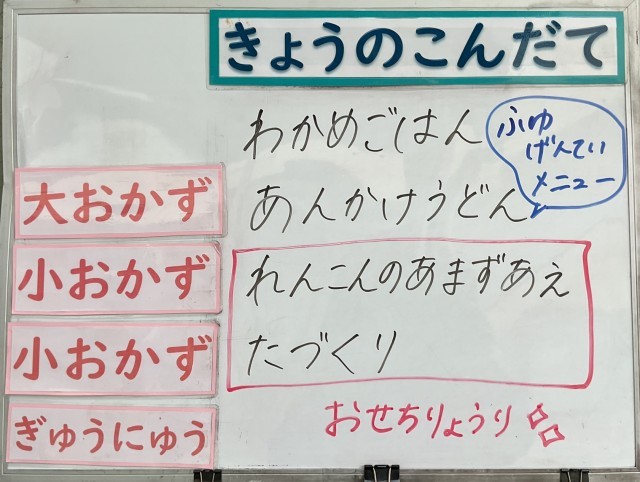 きょうのこんだて
わかめごはん
ふゆ
げんてい
メニュー
大おかず
あんかけうどん
小おかず
れんこんのあまずあえ
小おかず
たづくり
おせちりょうり
ぎゅうにゅう